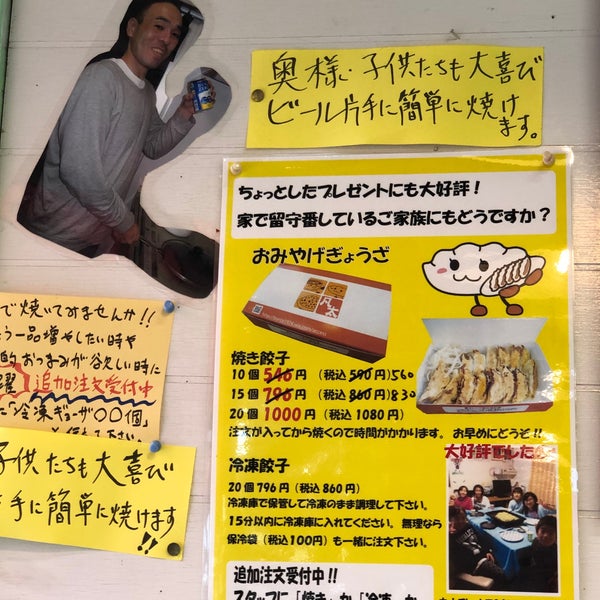 奥様・子供たちも大喜び
ビール片手に簡単に焼け
ます。
ちょっとしたプレゼントにも大好評!
家で留守番しているご家族にもどうですか?
おみやげぎょうざ
焼き餃子
10個 546円 (税込590円) 560
15個 796円 (税込860円) 830
20個 1000円 (税込1080円)
注文が入ってから焼くので時間がかかります。 お早めにどうぞ!!
冷凍餃子
20個 796円 (税込860円)
冷凍庫で保管して冷凍のまま調理して下さい。
15分以内に冷凍庫に入れてください。 無理なら
保冷袋(税込100円)も一緒に注文下さい。
大好評でした
追加注文受付中!!
スタッフに「焼き」か「冷凍」か
で焼いてみませんか!!
う一品増やしたい時や
的おつまみが欲しい時に
追加注文受付中
「冷凍ギョーザ〇〇個」
子供たちも大喜び
手に簡単に焼けます
!!